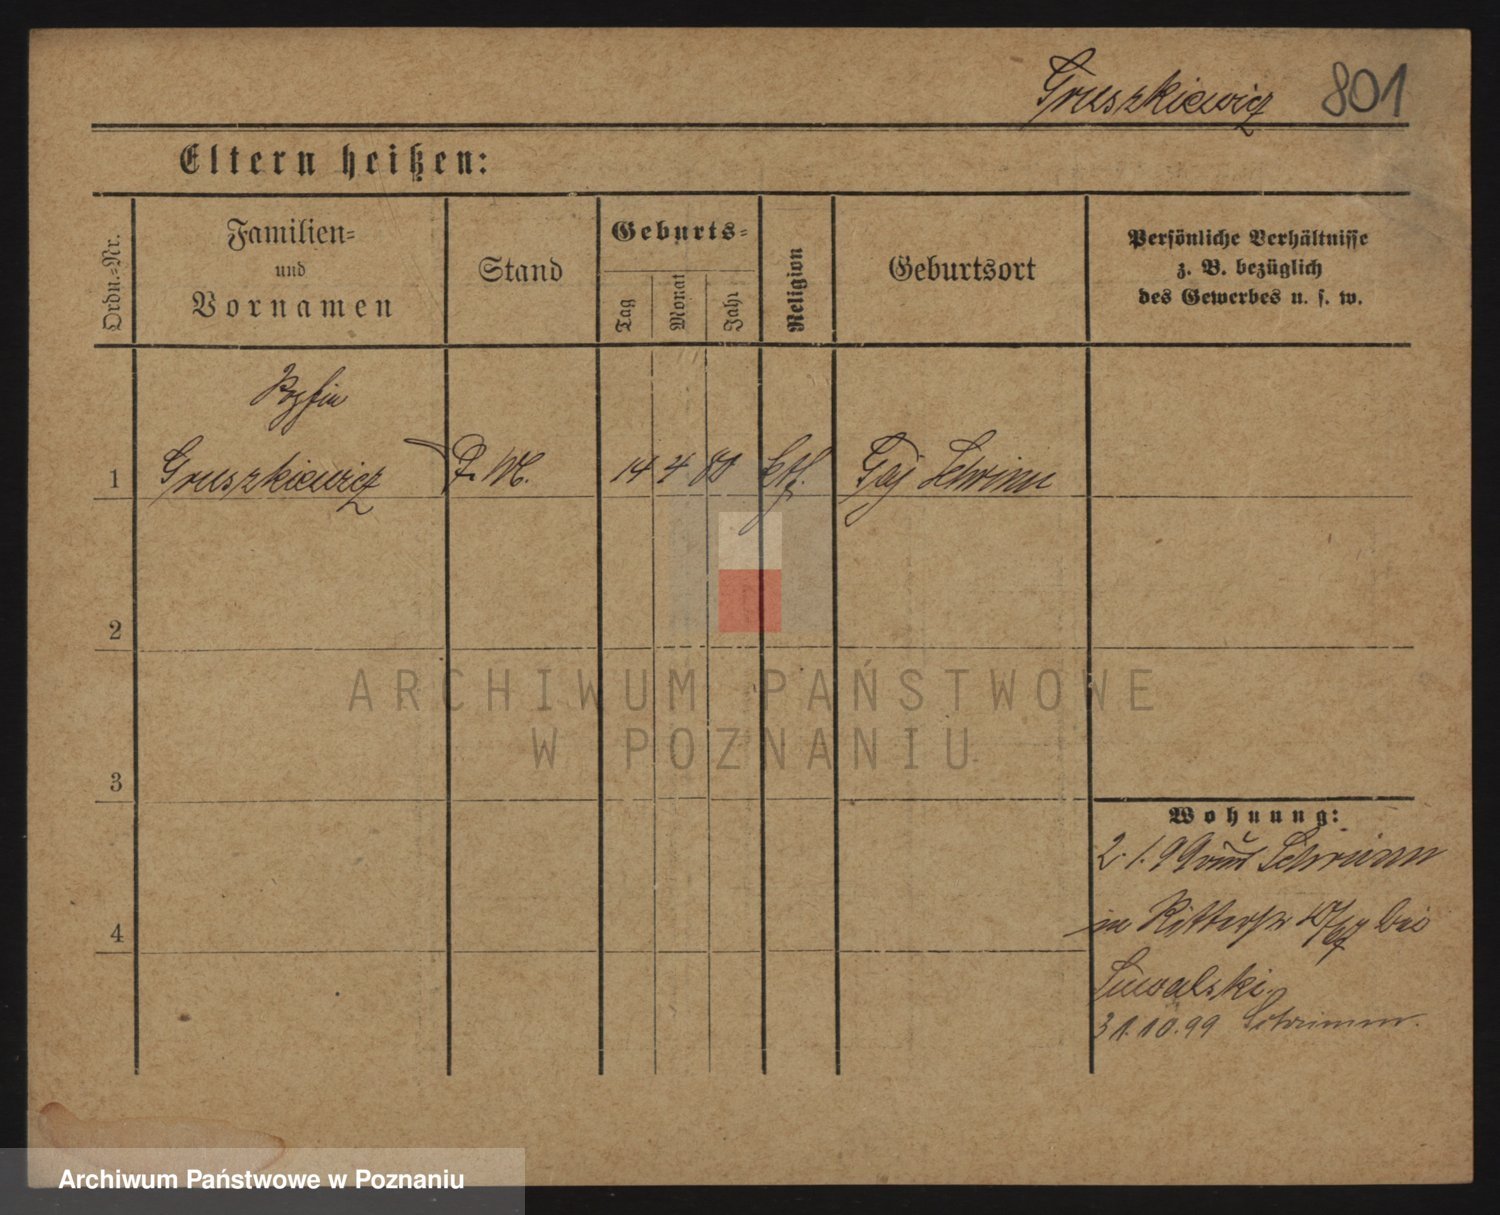 Gruszkiewicz 801
Eltern heißen:
Ordn.-Nr.
Familien-
und
Vornamen
Stand
Geburts-
Tag
Monat
Jahr
Religion
Geburtsort
Persönliche Verhältnisse
z. B. bezüglich
des Gewerbes u. s. w.
1 Gruszkiewicz D. M. 14 4 80 kth. Gaj Schrimm
2
ARCHIWUM PAŃSTWOWE
W POZNANIU
3
Wohnung:
2.1.99 Schrimm
in Ritterstr bei
Suwalski.
4
31.10.99 Schrimm.
Archiwum Państwowe w Poznaniu